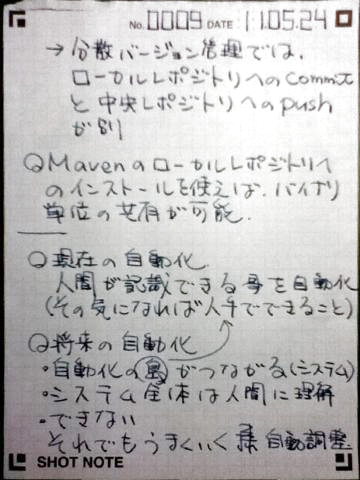 No. 0009 DATE 11.05.24
→ 分散バージョン管理では、
ローカルレポジトリへのcommit
と中央レポジトリへのpush
が別
○Mavenのローカルレポジトリへ
のインストールを使えば、バイナリ
単位の共有が可能.
○現在の自動化
人間が認識できる事を自動化
(その気になれば人手でできること)
○将来の自動化
・自動化の島がつながる(システム)
・システム全体は人間に理解
・できない
それでもうまくいく 自動調整
SHOT NOTE